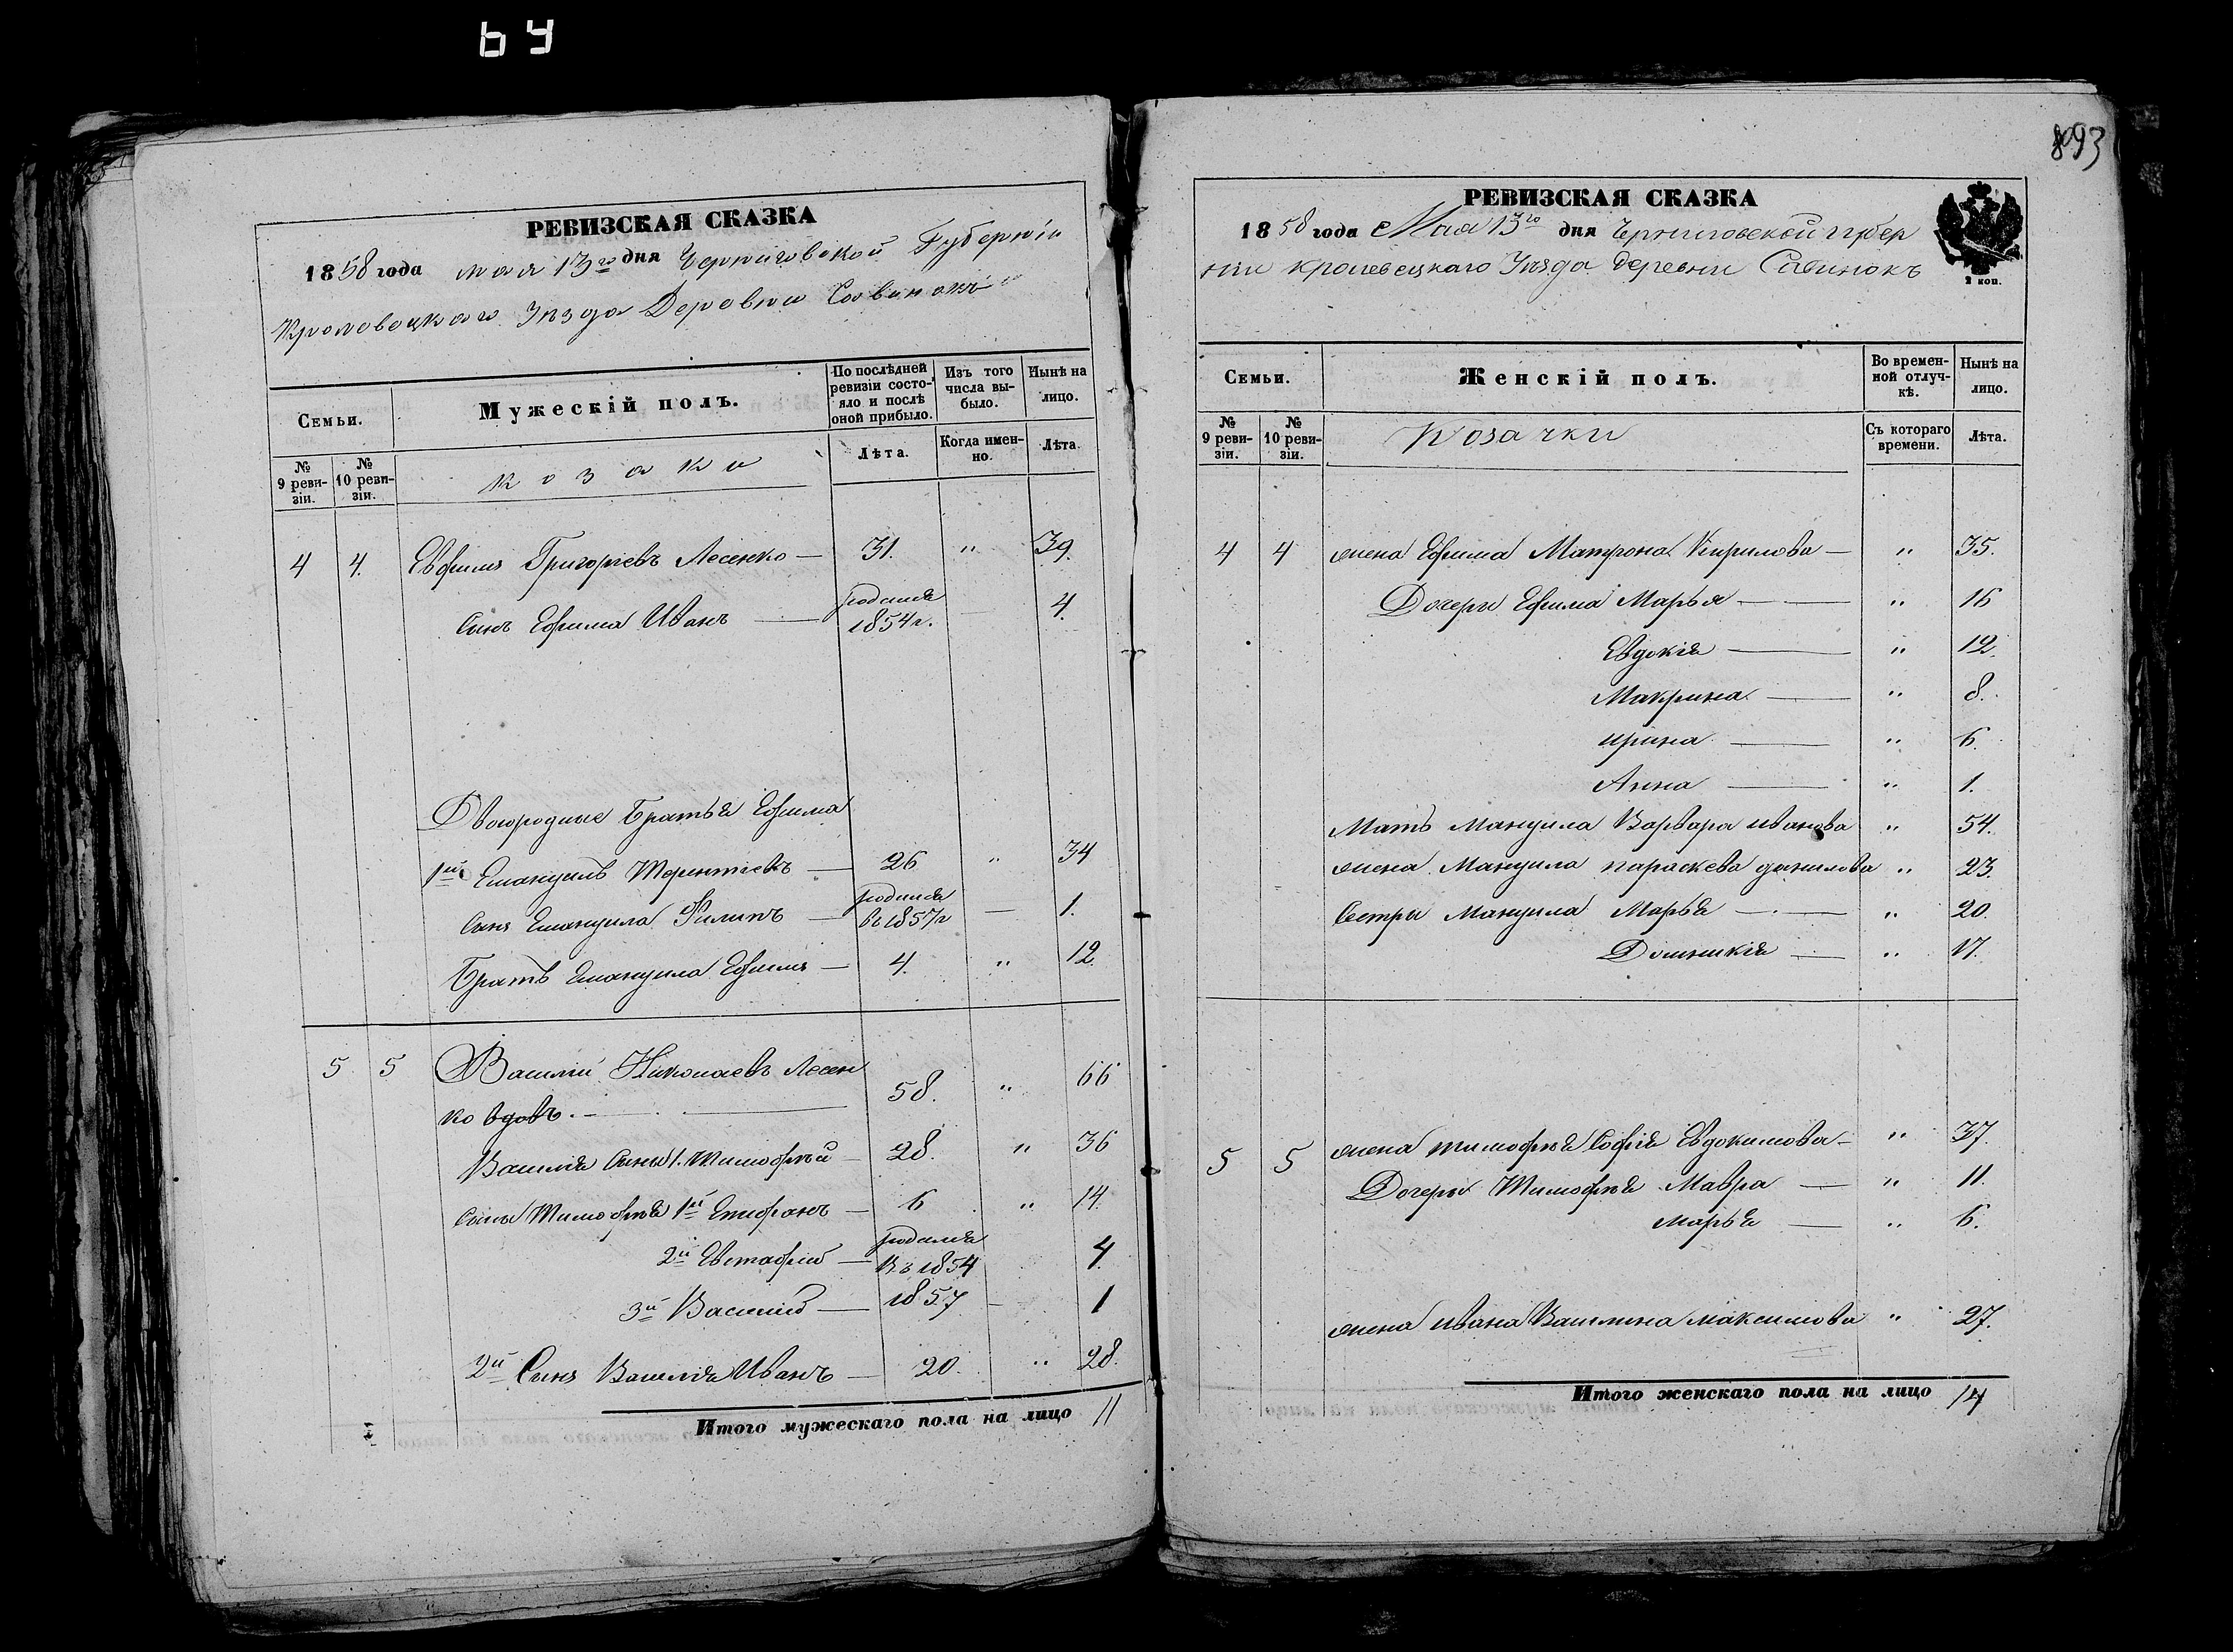 64
РЕВИЗСКАЯ СКАЗКА
1858 года мая 13го дня Черниговской Губерніи
Кролевецкаго Уѣзда Деревни Савинокъ
Семьи.
Мужескій полъ.
По послѣдней ревизіи состояло и послѣ оной прибыло.
Изъ того числа выбыло.
Нынѣ на лицо.
№ 9 ревизіи.
№ 10 ревизіи.
козаки
Лѣта.
Когда именно.
Лѣта.
4 4. Евфимъ Григоріевъ Лесенко — 31. " 39.
Сынъ Ефима Иванъ — родился 1854 г. 4.
Двоюродные Братья Ефима
1й Емануилъ Терентіевъ — 26 " 34
Сынъ Емануила Филипъ — родился въ 1857 г — 1.
Братъ Емануила Ефимъ — 4. " 12.
5 5 Василій Николаевъ Лесен
ко вдовъ. — 58. " 66
Василія Сыны 1. Тимофѣй — 28. " 36
Сыны Тимофѣя 1й Епифанъ — 6 " 14.
2й Евстафій — родился въ 1854 4.
3й Василій — 1857 — 1
2й Сынъ Василія Иванъ — 20. " 28.
Итого мужескаго пола на лицо 11
893
РЕВИЗСКАЯ СКАЗКА
1858 года Мая 13го дня Черниговской губер
ніи кролевецкаго Уѣзда деревни Савинокъ
2 коп.
Семьи.
Женскій полъ.
Во временной отлучкѣ.
Нынѣ на лицо.
№ 9 ревизіи.
№ 10 ревизіи.
Козачки
Съ котораго времени.
Лѣта.
4 4 жена Ефима Матрона Кирилова — " 35.
Дочери Ефима Марья — " 16
Евдокія — " 12.
Макрина — " 8.
ирина — " 6.
Анна — " 1.
Мать Мануила Варвара иванова " 54.
жена Мануила параскева данилова " 23.
Сестры Мануила Марья — " 20.
Домникія — " 17.
5 5 жена тимофѣя Софія Евдокимова — " 37.
Дочеры Тимофѣя Мавра — " 11.
Марья — " 6.
жена ивана Василина максимова " 27.
Итого женскаго пола на лицо 14